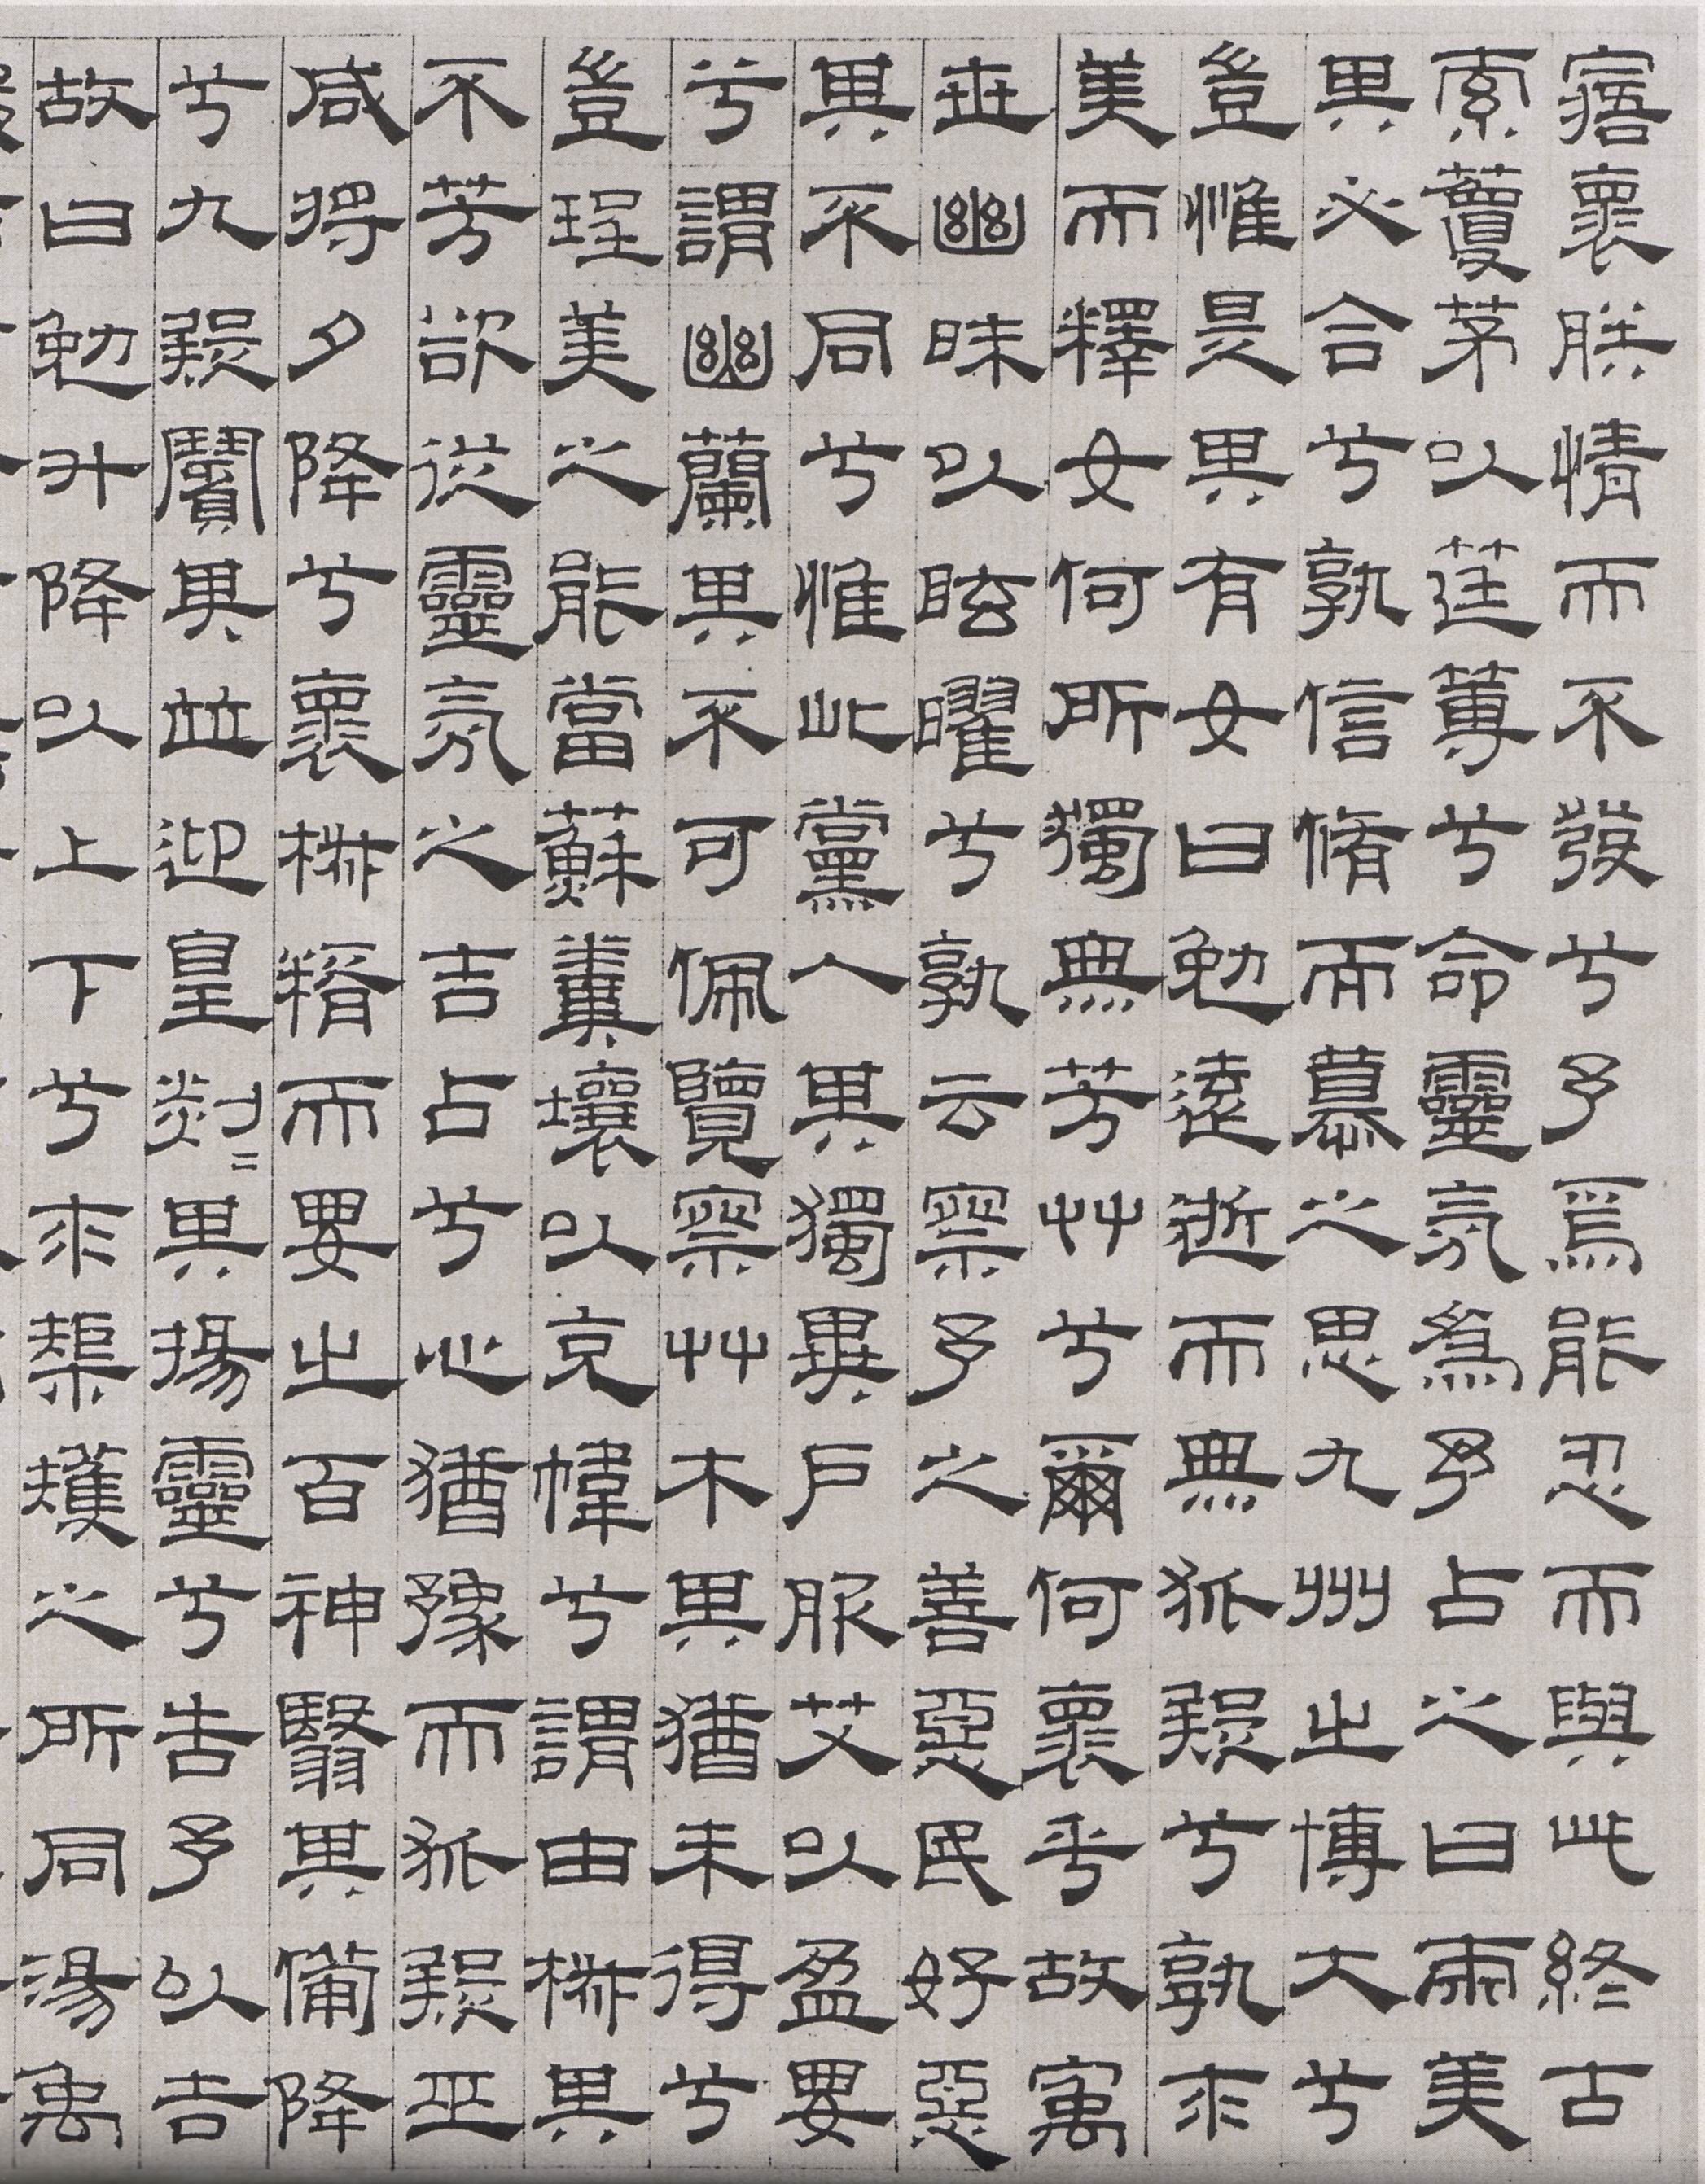 寤褱朕情而不發兮予焉能忍而與此終古
索藑茅以莛蓴兮命靈氛爲予占之曰兩美
其必合兮孰信脩而慕之思九州之博大兮
豈惟是其有女曰勉遠逝而無狐疑兮孰求
美而釋女何所獨無芳艸兮爾何褱乎故㝢
世幽昧以眩曜兮孰云察予之善惡民好惡
其不同兮惟此黨人其獨異戶服艾以盈要
兮謂幽蘭其不可佩覽察艸木其猶未得兮
豈珵美之能當蘇糞壤以充幃兮謂申椒其
不芳欲從靈氛之吉占兮心猶豫而狐疑巫
咸將夕降兮褱椒糈而要之百神翳其備降
兮九疑繽其並迎皇剡=其揚靈兮告予以吉
故曰勉升降以上下兮求榘矱之所同湯禹